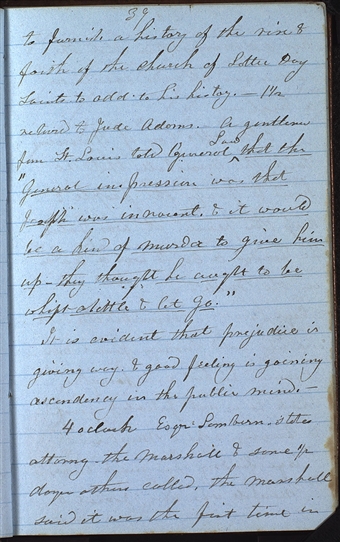 38
to furnish a history of the rise &
faith of the Church of Latter Day
Saints to add to his history. — 1 1/2
returnd to Jude Adams. A gentleman
from St. Louis told General Law that the
"General impression was that
Joseph was innocent. & it would
be a kind of murder to give him
up – they thought he ought to be
whipt a little & let go."
It is evident that prejudice is
giving way. & good feeling is gaining
ascendency in the public mind. –
4 oclock Esqr Lamborn. state
attorny. the Marshall & some 1/2
dozen others called, the marshall
said it was the first time in